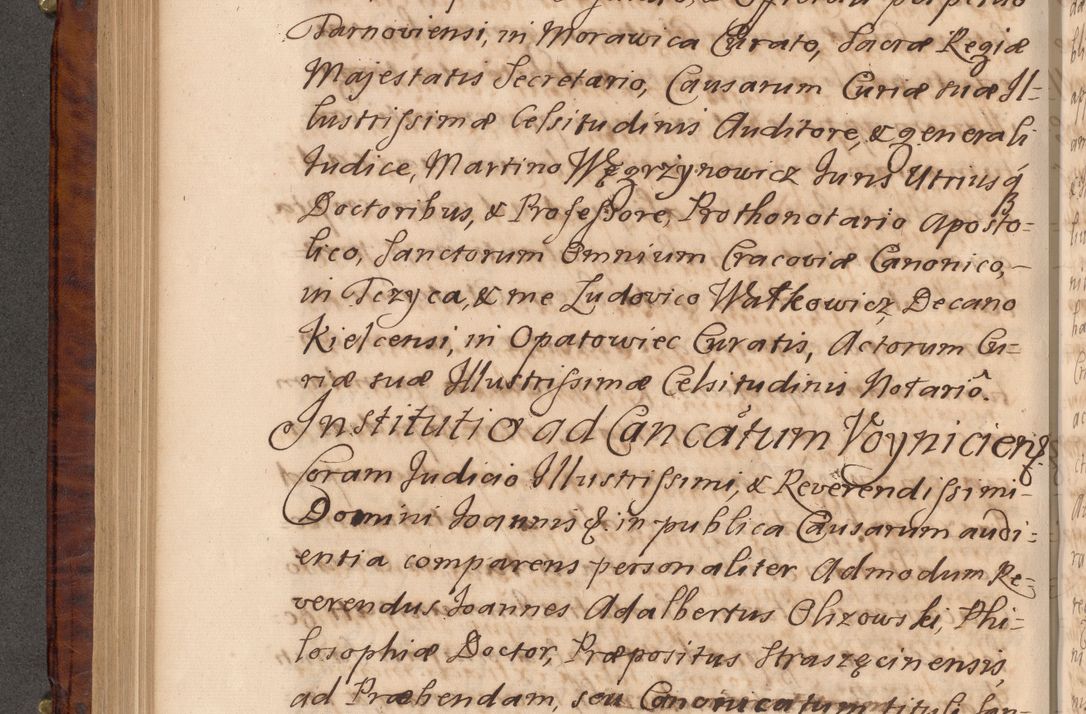 Tarnoviensi, in Morawica Curato, Sacræ Regiæ
Majestatis Secretario, Causarum Curiæ suæ Il=
lustrissimæ Celsitudinis Auditore, & generali
Iudice, Martino Węgrżynowicz Iuris Utriusq
Doctoribus, & Professore, Prothonotario Aposto=
lico, Sanctorum Omnium Cracoviæ Canonico,
in Tczyca, & me Ludovico Wałkowicz Decano
Kielcensi, in Opatowiec Curatis, Actorum Cu=
riæ suæ Illustrissimæ Celsitudinis Notariô.
Institutio ad Cancâtum Voyniciens:
Coram Iudicio Illustrissimi, & Reverendissimi
Domini Ioannis & in publica Causarum audi=
entia comparens personaliter Admodum Re=
verendus Ioannes Adalbertus Olizowski, Phi=
losophiæ Doctor, Præpositus Straszęcinensis,
ad Præbendam, seu Canonicatum tituli San=